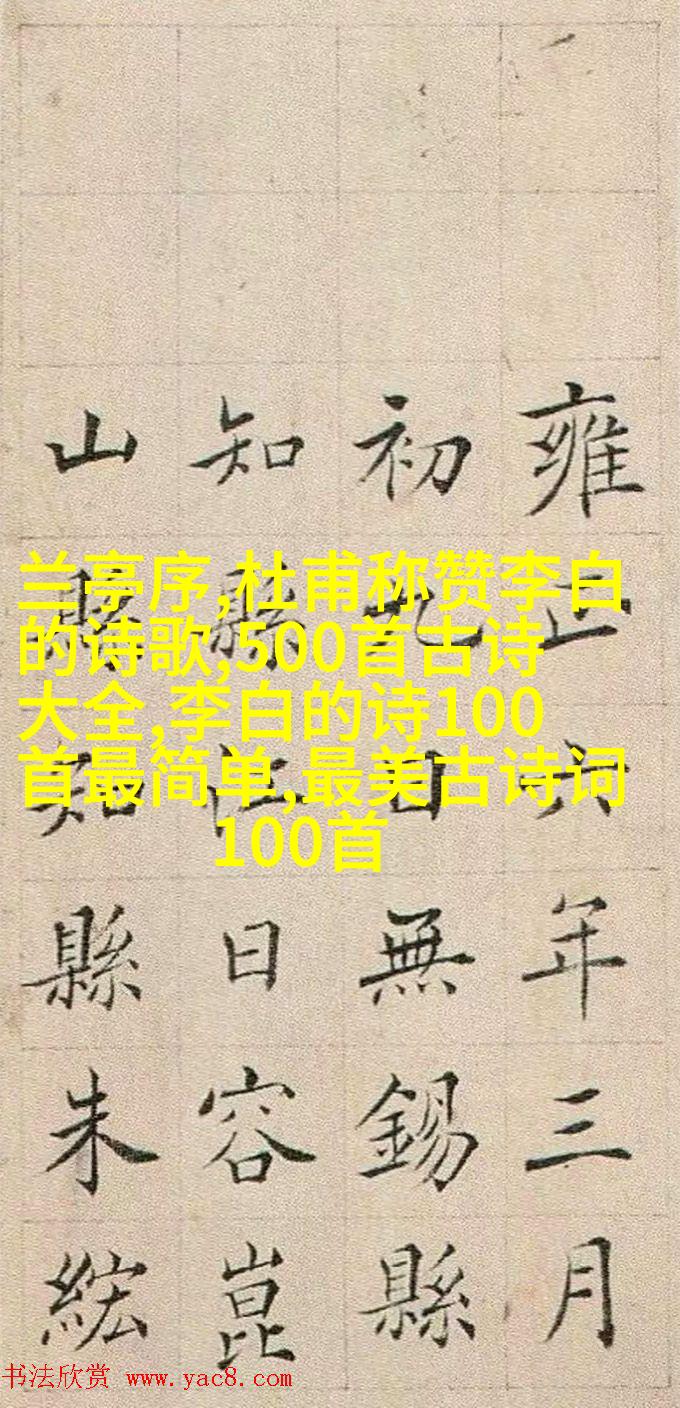 雍正六年三月
初九日無錫縣
知縣江日容崑
山縣知縣朱綋
兰亭序,杜甫称赞李白
的诗歌,500首古诗
大全,李白的诗100
首最简单,最美古诗词
100首
书法欣赏 www.yac8.com